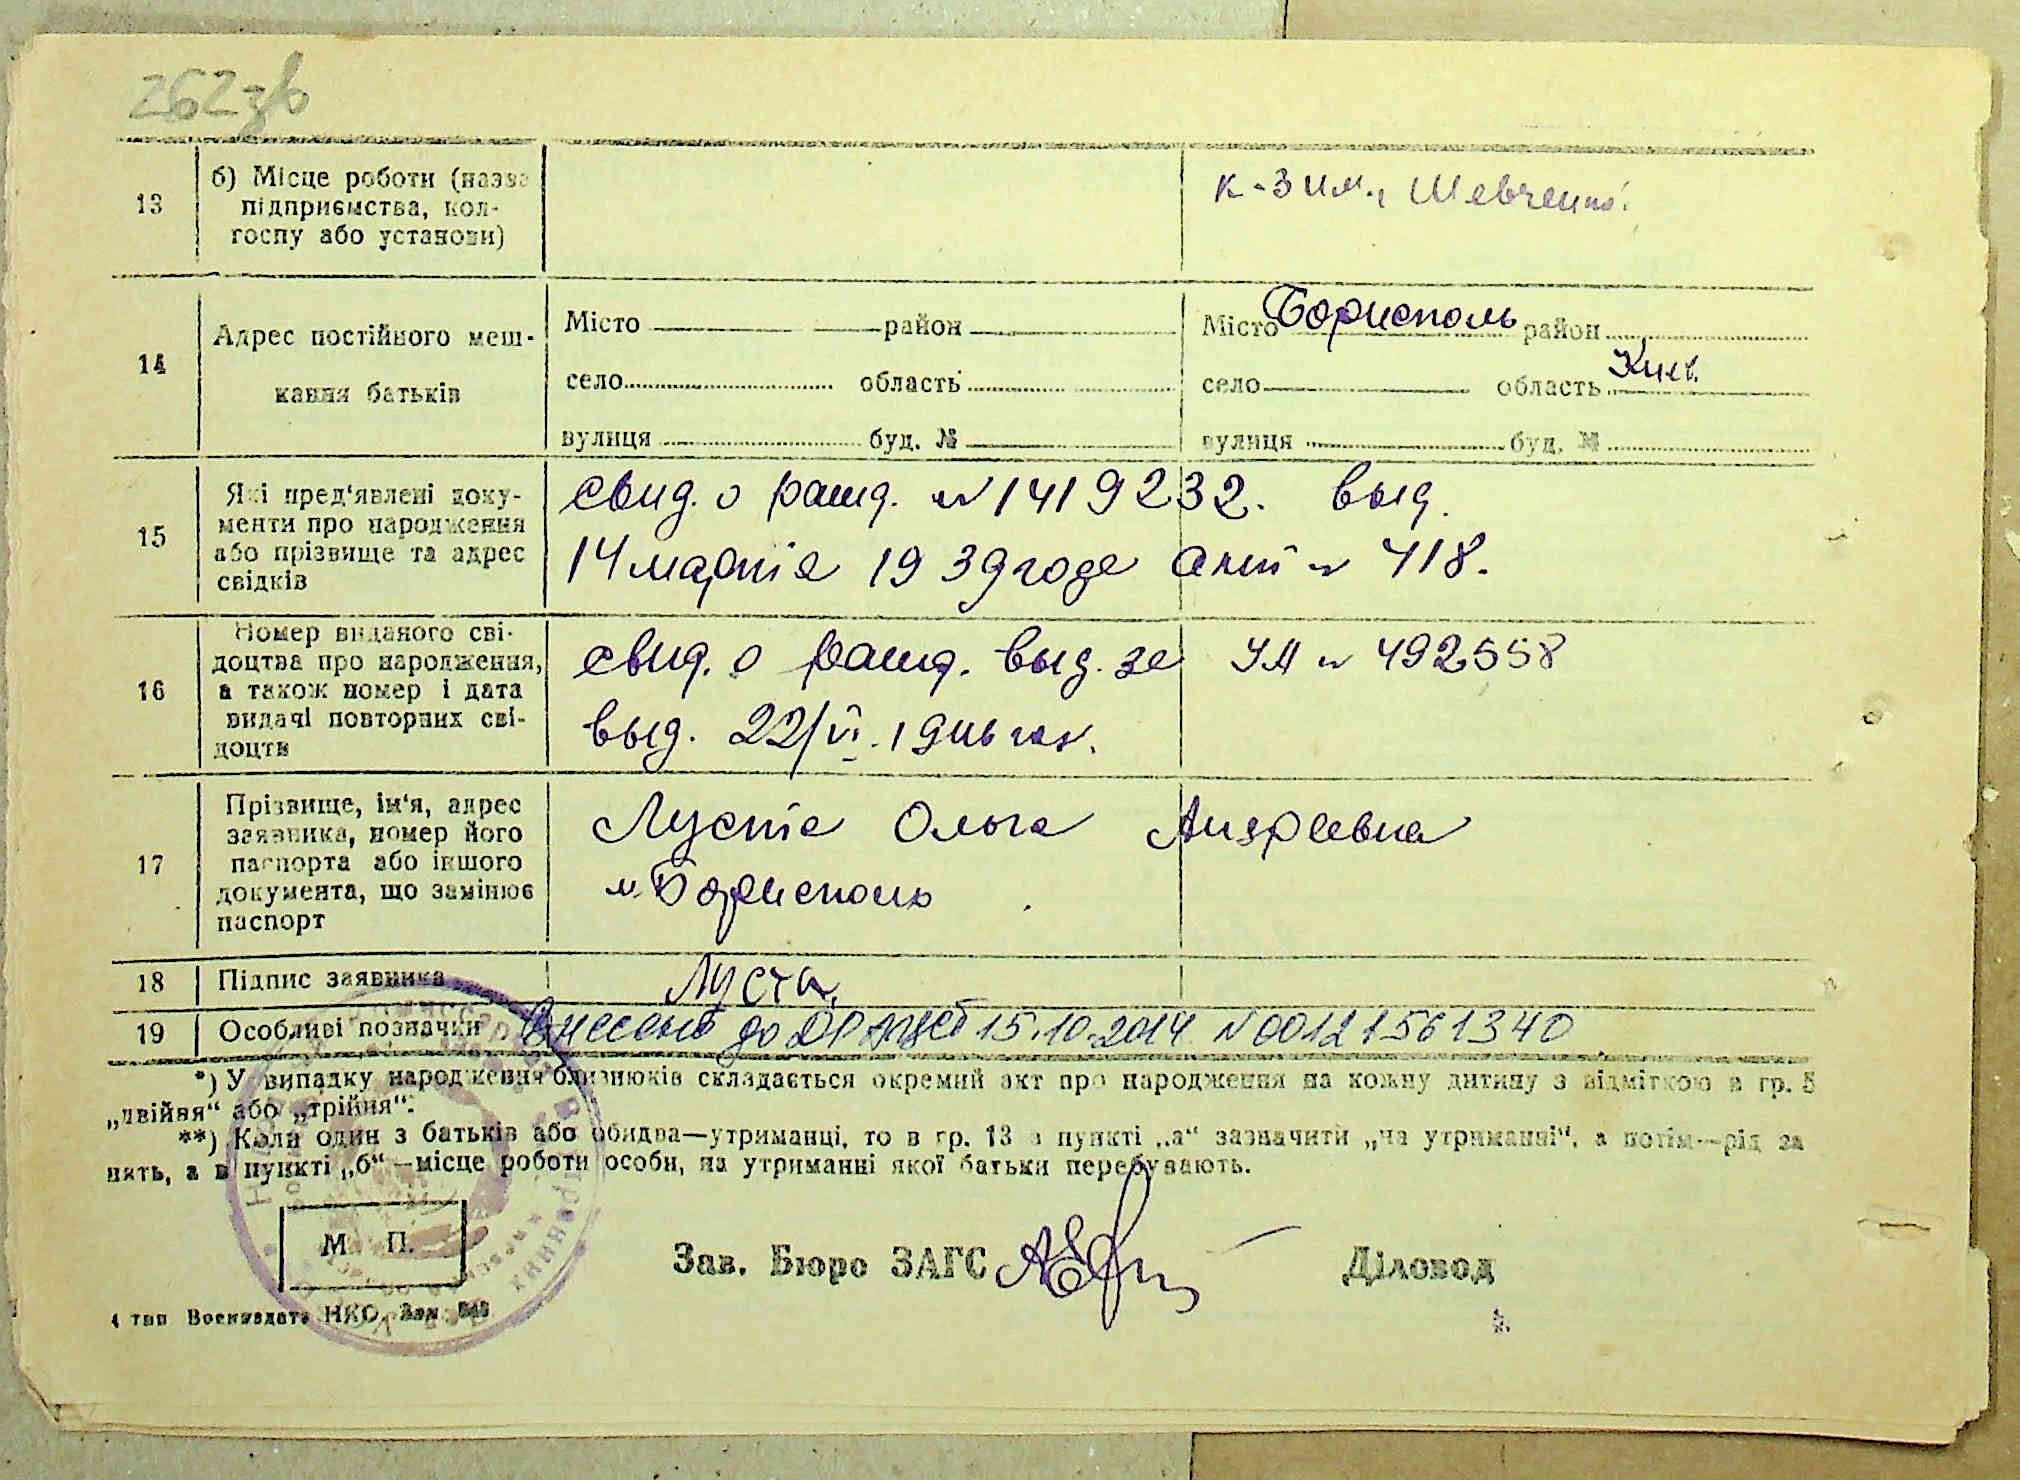 262зв
13
б) Місце роботи (назва
підприємства, кол-
госпу або установи)
к-з им. Шевченко.
14
Адрес постійного меш-
кання батьків
Місто район
село область
вулиця буд. №
Місто Борисполь район
село область Киев.
вулиця буд. №
15
Які пред'явлені доку-
менти про народження
або прізвище та адрес
свідків
свид. о рожд. № 1419232. выд.
14 марта 1939 года акт № 418.
16
Номер виданого сві-
доцтва про народження,
а також номер і дата
видачі повторних сві-
доцтв
свид. о рожд. выд. за УА № 492558
выд. 22/VI. 1946 год.
17
Прізвище, ім'я, адрес
заявника, номер його
паспорта або іншого
документа, що замінює
паспорт
Луста Ольга Андреевна
м. Борисполь
18
Підпис заявника
Луста.
19
Особливі позначки
Внесено до ДРАЦСГ 15.10.2014 №00121561340
*) У випадку народження близнюків складається окремий акт про народження на кожну дитину з відміткою в гр. 5
„двійня“ або „трійня“.
**) Коли один з батьків або обидва—утриманці, то в гр. 13 в пункті „а“ зазначити „на утриманні“, а потім—рід за
нять, а в пункті „б“—місце роботи особи, на утриманні якої батьки перебувають.
М. П.
Зав. Бюро ЗАГС
Діловод
4 тип Воениздата НКО. Зам.